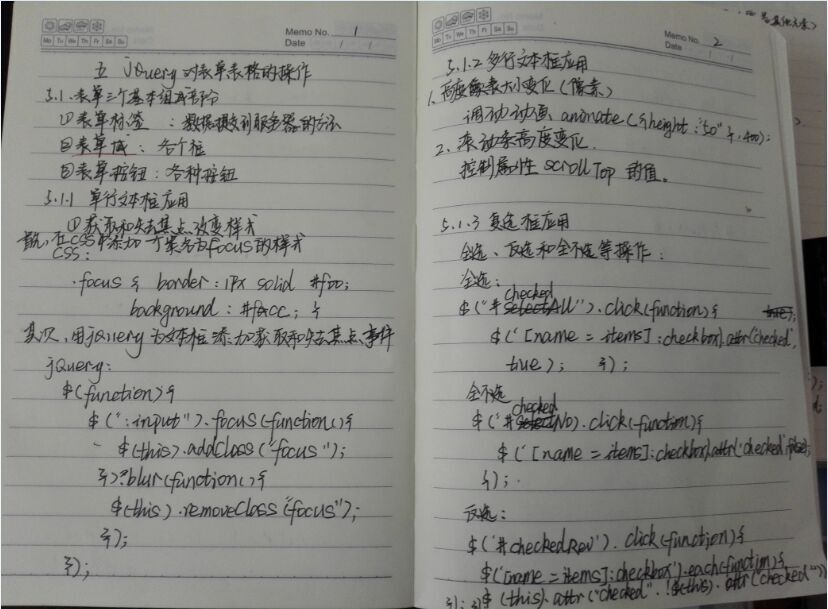 Memo No. 1
Mo Tu We Th Fr Sa Su
Date / /
五 jQuery对表单表格的操作
5.1.表单三个基本组成部分
①表单标签:数据提交到服务器的方法
②表单域:各个框
③表单按钮:各种按钮
5.1.1 单行文本框应用
①获取和失去焦点改变样式
首先,在CSS中添加一个类名为focus的样式
CSS:
.focus { border: 1px solid #f00;
background: #fcc; }
其次,用jQuery为文本框添加获取和失去焦点事件
jQuery:
$(function){
$(":input").focus(function(){
$(this).addClass("focus");
}).blur(function(){
$(this).removeClass("focus");
});
});
Memo No. 2
Mo Tu We Th Fr Sa Su
Date / /
5.1.2 多行文本框应用
1.高度 大小变化(像素)
调动动画 animate({height:"50"},400);
2、滚动条高度变化.
控制属性 scrollTop 的值。
5.1.3 复选框应用
全选、反选和全不选等操作:
全选:
$("#checkedAll").click(function){
$('[name=items]:checkbox).attr('checked',
true); });
全不选
$('#checkedNo).click(function){
$('[name=items]:checkbox).attr('checked',false);
});
反选:
$('#checkedRev').click(function){
$('[name=items]:checkbox').each(function){
$(this).attr("checked".!$(this).attr("checked"))
});